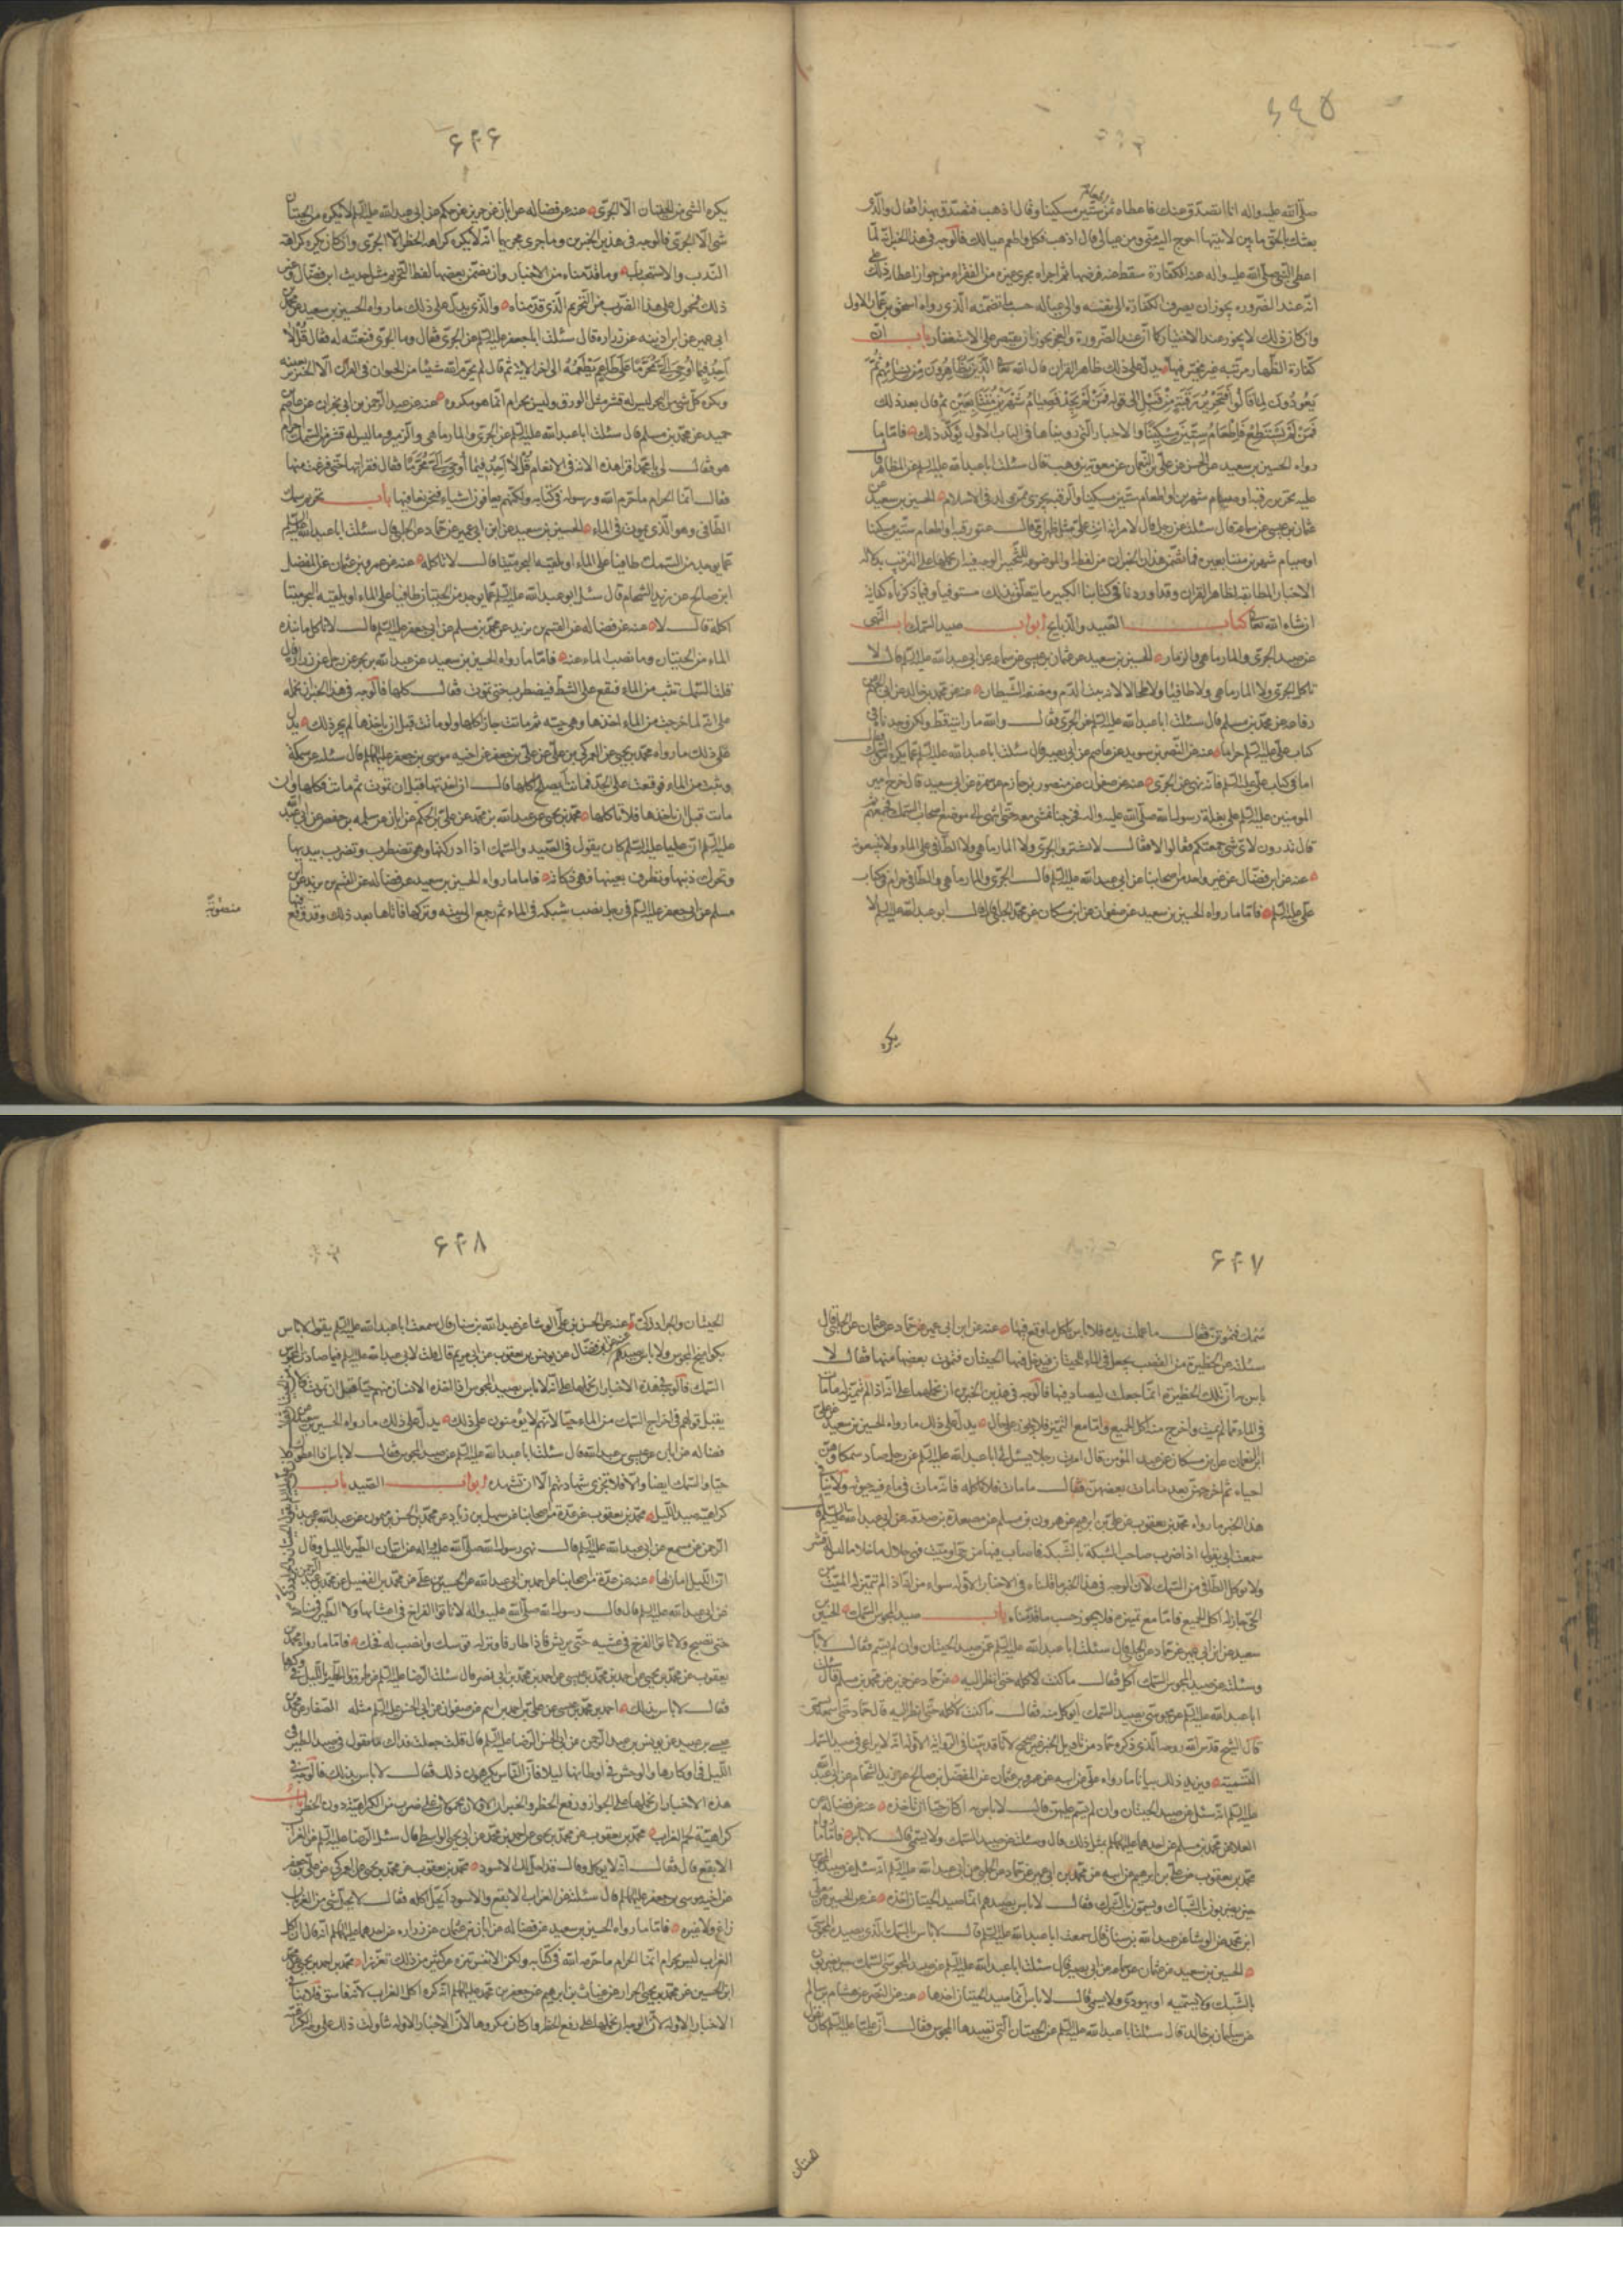 ۶۴۵
صلّى الله عليه واله انا اتصدّق عنك فاعطاه تمرا ستّين مسكينا وقال اذهب فتصدّق بهذا فقال والّذى
بعثك بالحقّ ما بين لابتيها احوج اليه منّى ومن عيالى قال اذهب فكل واطعم عيالك فالوجه فى هذا الخبر انّه لمّا
اعطى النّبى صلّى الله عليه واله عنه الكفّارة سقط عنه فرضها ثم اجراه مجرى غيره من الفقراء من جواز اعطاء ذلك
انّه عند الضّرورة يجوز ان يصرف الكفّارة الى نفسه والى عياله حسب ما تضمّنه الّذى رواه اسحق بن عمّار الاول
وان كان ذلك لا يجوز عند الاختيار كما انّ عند الضّرورة والعجز يجوز ان يقتصر على الاستغفار باب انّ
كفّارة الظّهار مرتّبة غير مخيّر فيها يدلّ على ذلك ظاهر القران قال الله تعالى الَّذِينَ يُظَاهِرُونَ مِنْ نِسَائِهِمْ ثُمَّ
يَعُودُونَ لِمَا قَالُوا فَتَحْرِيرُ رَقَبَةٍ مِنْ قَبْلِ الى قوله فَمَنْ لَمْ يَجِدْ فَصِيَامُ شَهْرَيْنِ مُتَتَابِعَيْنِ ثم قال بعد ذلك
فَمَنْ لَمْ يَسْتَطِعْ فَإِطْعَامُ سِتِّينَ مِسْكِينًا والاخبار الّتى رويناها فى الباب الاول تؤكّد ذلك فامّا ما
رواه الحسين بن سعيد عن الحسن عن على بن النّعمان عن معوية بن وهب قال سئلت ابا عبد الله عليه السّلم عن المظاهر قال
عليه تحرير رقبة او صيام شهرين او اطعام ستّين مسكينا والرقبة يجزى ممّن ولد فى الاسلام الحسين بن سعيد عن
عثمان بن عيسى عن سماعة قال سئلته عن رجل قال لامراته انت علىّ مثل ظهر امّى قال عتق رقبة او اطعام ستّين مسكينا
او صيام شهرين متتابعين فما تضمّن هذان الخبران من لفظة او الموضوعة للتّخيير الوجه فيه ان نحملها على الترتيب بدلالة
الاخبار المطابقة لظاهر القران وقد اوردنا فى كتابنا الكبير ما يتعلّق بذلك مستوفى وفيما ذكرناه كفاية
ان شاء الله تعالى كتاب الصّيد والذّبايح ابواب صيد السّمك باب النّهى
عن صيد الجرّى والمارماهى والزمار الحسين بن سعيد عن عثمان بن عيسى عن سماعة عن ابى عبد الله عليه السّلم قال لا
تاكل الجرّى ولا المارماهى ولا طافيا ولا طحالا لانه بيت الدّم ومضغة الشّيطان عنه عن محمّد بن خالد عن ابى الجهم
رفاعة عن محمّد بن مسلم قال سئلت ابا عبد الله عليه السّلم عن الجرّى فقال والله ما رايته قط ولكن وجدناه فى
كتاب علىّ عليه السّلم حراما عنه عن النّضر بن سويد عن عاصم عن ابى بصير قال سئلت ابا عبد الله عليه السّلم عمّا يكره من السّمك فقال
اما فى كتاب علىّ عليه السّلم فانّه نهى عن الجرّى عنه عن صفوان عن منصور بن حازم عن سمرة عن ابى سعيد قال خرج امير
المومنين عليه السّلم على بغلة رسول الله صلّى الله عليه واله فخرجنا نمشى معه حتّى انتهى الى موضع اصحاب السّمك فجمعهم ثم
قال تدرون لاىّ شى جمعتكم فقالوا لا فقال لا تشتروا الجرّى ولا المارماهى ولا الطّافى على الماء ولا تبيعوه
عنه عن ابن فضّال عن غير واحد من اصحابنا عن ابى عبد الله عليه السّلم قال الجرّى والمارماهى والطّافى حرام فى كتاب
علىّ عليه السّلم فامّا ما رواه الحسين بن سعيد عن صفوان عن ابن مسكان عن محمّد الحلبى قال قال ابو عبد الله عليه السّلم لا
يكره
۶۴۶
يكره الشى من الحيتان الّا الجرّى عنه عن فضالة عن ابان عن حريز عن حكم عن ابى عبد الله عليه السّلم قال لا يكره من الحيتان
شى الّا الجرّى فالوجه فى هذين الخبرين وما جرى مجريهما انّه لا يكره كراهة الحظر الّا الجرّى وان كان يكره كراهة
النّدب والاستحباب وما قدّمناه من الاخبار وان تضمّن بعضها لفظ التّحريم مثل حديث ابن فضّال وغير
ذلك فمحمول على هذا الضّرب من التّحريم الّذى قدّمناه والّذى يدلّ على ذلك ما رواه الحسين بن سعيد عن محمد بن
ابى عمير عن ابن اذينه عن زرارة قال سئلت ابا جعفر عليه السّلم عن الجرّى فقال وما الجرّى فنعتّه له فقال قُلْ لَا
أَجِدُ فِيمَا أُوحِىَ إِلَىَّ مُحَرَّمًا عَلَى طَاعِمٍ يَطْعَمُهُ الى اخر الاية ثم قال لم يحرّم الله شيئا من الحيوان فى القرآن الّا الخنزير بعينه
ويكره كلّ شى من البحر ليس له قشر مثل الورق وليس بحرام انّما هو مكروه عنه عن عبد الرّحمن بن ابى نجران عن عاصم بن
حميد عن محمّد بن مسلم قال سئلت ابا عبد الله عليه السّلم عن الجرّى والمارماهى والزمير وما ليس له قشر من السّمك احرام
هو فقال لى يا محمّد اقرا هذه الاية فى الانعام قُلْ لَا أَجِدُ فِيمَا أُوحِىَ إِلَىَّ مُحَرَّمًا فقال فقراتها حتّى فرغت منها
فقال انّما الحرام ما حرّم الله ورسوله فى كتابه ولكنّهم يعافون اشياء فنحن نعافها باب تحريم السّمك
الطّافى وهو الّذى يموت فى الماء الحسين بن سعيد عن ابن ابى عمير عن حمّاد عن الحلبى قال سئلت ابا عبد الله عليه السّلم
عمّا يوجد من السّمك طافيا على الماء او يلقيه البحر ميّتا قال لا تاكله عنه عن عمرو بن عثمان عن المفضل
ابن صالح عن زيد الشّحام قال سئل ابو عبد الله عليه السّلم عمّا يوجد من الحيتان طافيا على الماء او يلقيه البحر ميتا
اكله قال لا عنه عن فضالة عن القسم بن بريد عن محمّد بن مسلم عن ابى جعفر عليه السّلم قال لا تاكل ما نبذه
الماء من الحيتان وما نضب الماء عنه فامّا ما رواه الحسين بن سعيد عن عبد الله بن بحر عن رجل عن زرارة قال
قلت السّمك تثب من الماء فتقع على الشّط فيضطرب حتّى تموت فقال كلها فالوجه فى هذا الخبر ان نحمله
على انّه لما خرجت من الماء اخذها وهى حيّة ثم ماتت جاز اكلها ولو ماتت قبل ان ياخذها لم يجز ذلك يدلّ
على ذلك ما رواه محمّد بن يحيى عن العمركى بن على عن علىّ بن جعفر عن اخيه موسى بن جعفر عليهما السّلم قال سئلته عن سمكة
وثبت من الماء فوقعت على الجدّ فماتت ايصلح اكلها قال ان اخذتها قبل ان تموت ثم ماتت فكلها وان
ماتت قبل ان تاخذها فلا تاكلها محمّد بن يحيى عن عبد الله بن محمّد عن علىّ بن الحكم عن ابان عن سلمة بن حفص عن ابى عبد الله
عليه السّلم انّ عليا عليه السّلم كان يقول فى الصّيد والسّمك اذا ادركتها وهى تضطرب وتضرب بيديها
وتحرك ذنبها وتطرف بعينها فهى ذكاته فاما ما رواه الحسين بن سعيد عن فضالة عن القسم بن بريد عن محمد بن
مسلم عن ابى جعفر عليه السّلم فى رجل نصب شبكة فى الماء ثم رجع الى بيته وتركها فاتاها بعد ذلك وقد وقع فيها
منصوبة
۶۴۷
سمك فتموتن فقال ما عملت يده فلا باس باكل ما وقع فيها عنه عن ابن ابى عمير عن حمّاد عن عثمان عن الحلبى قال
سئلته عن الحظيرة من القصب يجعل فى الماء للحيتان فيدخل فيها الحيتان فتموت بعضها منها فقال لا
باس به ان تلك الحظيرة انّما جعلت ليصاد فيها فالوجه فى هذين الخبرين ان نحملهما على انّه اذا لم تتميّز له ما مات
فى الماء ممّا لم يمت واخرج منه اكل الجميع وامّا مع التّميّز فلا يجوز على حال يدلّ على ذلك ما رواه الحسين بن سعيد عن على
ابن النّعمان عن ابن مسكان عن عبد المؤمن قال امرت رجلا يسئل لى ابا عبد الله عليه السّلم عن رجل صاد سمكا وهنّ
احياء ثم اخرجهنّ بعد ما مات بعضهنّ فقال ما مات فلا تاكله فانّه مات فى ما فيه حيوته ولا ينافى
هذا الخبر ما رواه محمّد بن يعقوب عن علىّ بن ابراهيم عن هرون بن مسلم عن مسعدة بن صدقة عن ابى عبد الله عليه السّلم قال
سمعت ابى يقول اذا ضرب صاحب الشبكة بالشّبكة فما اصاب فيها من حىّ او ميّت فهو حلال ما خلا ما ليس له قشر
ولا يؤكل الطّافى من السّمك لانّ الوجه فى هذا الخبر ما قلناه فى الاخبار الاوّلة سواء من انّه اذا لم تتميّز له الميّت من
الحىّ جاز له اكل الجميع فامّا مع تميزه فلا يجوز حسب ما قدّمناه باب صيد المجوس السّمك الحسين بن
سعيد عن ابن ابى عمير عن حمّاد عن الحلبى قال سئلت ابا عبد الله عليه السّلم عن صيد الحيتان وان لم يسمّ فقال لا باس
وسئلته عن صيد المجوس السّمك آكله فقال ما كنت لاكله حتّى انظر اليه عن حمّاد عن حريز عن محمّد بن مسلم قال سئلت
ابا عبد الله عليه السّلم عن مجوسىّ يصيد السّمك ايوكل منه فقال ما كنت لاكله حتّى انظر اليه قال حمّاد حتّى اسمعه يسمّى
قال الشّيخ قدّس الله روحه الّذى ذكره حمّاد من تاويل الخبر غير صحيح لانّا قد بيّنا فى الرّواية الاوّلة انّه لا يراعى فى صيد السّمك
التّسمية ويزيد ذلك بيانا ما رواه علىّ عن ابيه عن عمرو بن عثمان عن المفضّل بن صالح عن زيد الشّحام عن ابى عبد الله
عليه السّلم انّه سئل عن صيد الحيتان وان لم يسمّ عليه قال لا باس به ان كان حيّا ان تاخذه عنه عن فضالة عن
العلا عن محمّد بن مسلم عن احدهما عليهما السّلم مثل ذلك قال وسئلته عن صيد السّمك ولا يسمّى قال لا باس فامّا ما رواه
محمّد بن يعقوب عن علىّ بن ابراهيم عن ابيه عن محمّد بن ابى عمير عن حمّاد عن الحلبى عن ابى عبد الله عليه السّلم انّه سئل عن صيد المجوس
حين يضربون بالشّباك ويسمّون بالشّرك فقال لا باس بصيدهم انّما صيد الحيتان اخذه عنه عن الحسين عن معلّى
ابن محمّد عن الوشا عن عبد الله بن سنان قال سمعت ابا عبد الله عليه السّلم قال لا باس بالسّمك الّذى يصيده المجوسىّ
الحسين بن سعيد عن عثمان عن سماعة عن ابى بصير قال سئلت ابا عبد الله عليه السّلم عن صيد المجوسىّ السّمك حين يضربون
بالشّبك ولا يسمّيه او يهودى ولا يسمى قال لا باس انّما صيد الحيتان اخذها عنه عن النّضر عن هشام بن سالم
عن سليمان بن خالد قال سئلت ابا عبد الله عليه السّلم عن الحيتان الّتى تصيدها المجوس فقال انّ عليّا عليه السّلم كان يقول
الحيتان
۶۴۸
الحيتان والجراد ذكىّ عنه عن الحسن بن علىّ الوشا عن عبد الله بن سنان قال سمعت ابا عبد الله عليه السّلم يقول لا باس
بكواميخ المجوس ولا باس بصيدهم عنه عن ابن فضّال عن يونس بن يعقوب عن ابى مريم قال قلت لابى عبد الله عليه السّلم فيما صاد المجوس
السّمك فالوجه فى هذه الاخبار ان نحملها على انّه لا باس بصيد المجوس اذا اخذه الانسان منهم حيّا قبل ان يموت
يقبل قولهم فى اخراج السّمك من الماء حيّا لانّهم لا يؤمنون على ذلك يدلّ على ذلك ما رواه الحسين بن سعيد عن
فضالة عن ابان عن عيسى بن عبد الله قال سئلت ابا عبد الله عليه السّلم عن صيد المجوس فقال لا باس اذا اعطوكاه
حيّا والسّمك ايضا والّا فلا تجزى شهادتهم الّا ان تشهده ابواب الصّيد باب
كراهية صيد اللّيل محمّد بن يعقوب عن عدّة من اصحابنا عن سهل بن زياد عن محمّد بن الحسن بن شمون عن عبد الله بن عبد
الرّحمن عن مسمع عن ابى عبد الله عليه السّلم قال نهى رسول الله صلّى الله عليه واله عن اتيان الطّير باللّيل وقال
انّ اللّيل امان لها عنه عن عدّة من اصحابنا عن احمد بن ابى عبد الله عن الحسين بن على عن محمّد بن الفضيل عن محمّد بن عبد الرّحمن
عن ابى عبد الله عليه السّلم قال قال رسول الله صلّى الله عليه واله لا تاتوا الفراخ فى اعشاشها ولا الطّير فى منامه
حتّى تصبح ولا تاتوا الفرخ فى عشه حتّى يريش فاذا طار فاوتر له قوسك وانصب له فخك فامّا ما رواه محمّد بن
يعقوب عن محمّد بن يحيى عن احمد بن محمّد بن عيسى عن احمد بن محمّد بن ابى نصر قال سئلت الرّضا عليه السّلم عن طروق الطّير باللّيل فى وكرها
فقال لا باس بذلك احمد بن محمّد بن عيسى عن علىّ بن احمد بن اشيم عن صفوان عن ابى الحسن عليه السّلم مثله الصّفار عن محمد بن
عيسى بن عبيد عن يونس بن عبد الرّحمن عن ابى الحسن الرّضا عليه السّلم قال قلت جعلت فداك ما تقول فى صيد الطّير فى
اللّيل فى اوكارها والوحش فى اوطانها ليلا فانّ النّاس يكرهون ذلك فقال لا باس بذلك فالوجه فى
هذه الاخبار ان نحملها على الجواز ورفع الحظر والخبران الاوّلان محمولان على ضرب من الكراهية دون الحظر باب
كراهيّة لحم الغراب محمّد بن يعقوب عن محمّد بن يحيى عن احمد بن محمّد عن ابى يحيى الواسطى قال سئل الرّضا عليه السّلم عن الغراب
الابقع قال فقال انّه لا يوكل وقال قد احل لك الاسود محمّد بن يعقوب عن محمّد بن يحيى عن العمركى عن علىّ بن جعفر
عن اخيه موسى بن جعفر عليهما السّلم قال سئلته عن الغراب الابقع والاسود ايحلّ اكله فقال لا يحلّ شى من الغراب
زاغ ولا غيره فامّا ما رواه الحسين بن سعيد عن فضالة عن ابان بن عثمان عن زرارة عن احدهما عليهما السّلم انّه قال انّ اكل
الغراب ليس بحرام انّما الحرام ما حرّمه الله فى كتابه ولكن الانفس تتنزه عن كثير من ذلك تقززا محمّد بن احمد بن يحيى عن محمد
ابن الحسين عن محمّد بن يحيى الخزاز عن غياث بن ابراهيم عن جعفر بن محمّد عليهما السّلم انّه كره اكل الغراب لانّه فاسق فلا ينافى
الاخبار الاوّلة لانّ الوجه ان نحملها على رفع الحظر وان كان مكروها لانّ الاخبار الاوّلة تناولت ذلك على وجه الكراهية